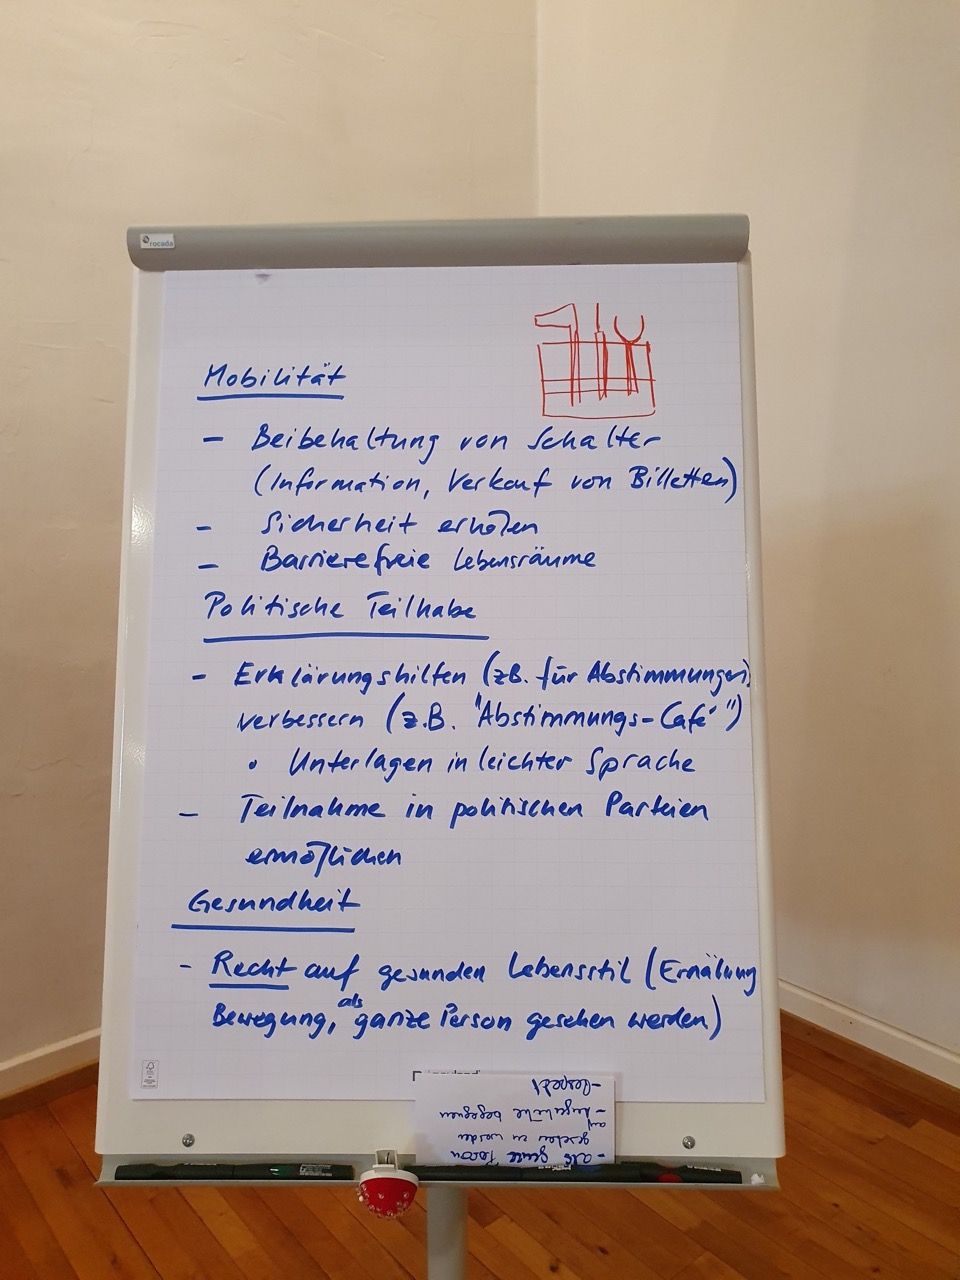 rocada
Mobilität
- Beibehaltung von Schalter
(Information, Verkauf von Billetten)
- Sicherheit erhöhen
- Barrierefreie Lebensräume
Politische Teilhabe
- Erklärungshilfen (z.B. für Abstimmungen)
verbessern (z.B. "Abstimmungs-Café")
• Unterlagen in leichter Sprache
- Teilnahme in politischen Parteien
ermöglichen
Gesundheit
- Recht auf gesunden Lebensstil (Ernährung
Bewegung, als ganze Person gesehen werden)
- als ganze Person
gesehen zu werden
- auf Augenhöhe begegnen
- Respekt